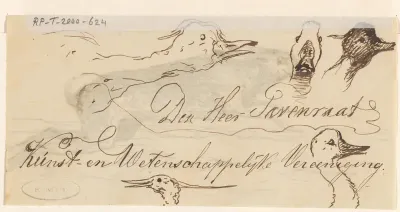 RP-T-2000-624
Den Heer Pavenraat
Kunst- en Wetenschappelijke Vereeniging.